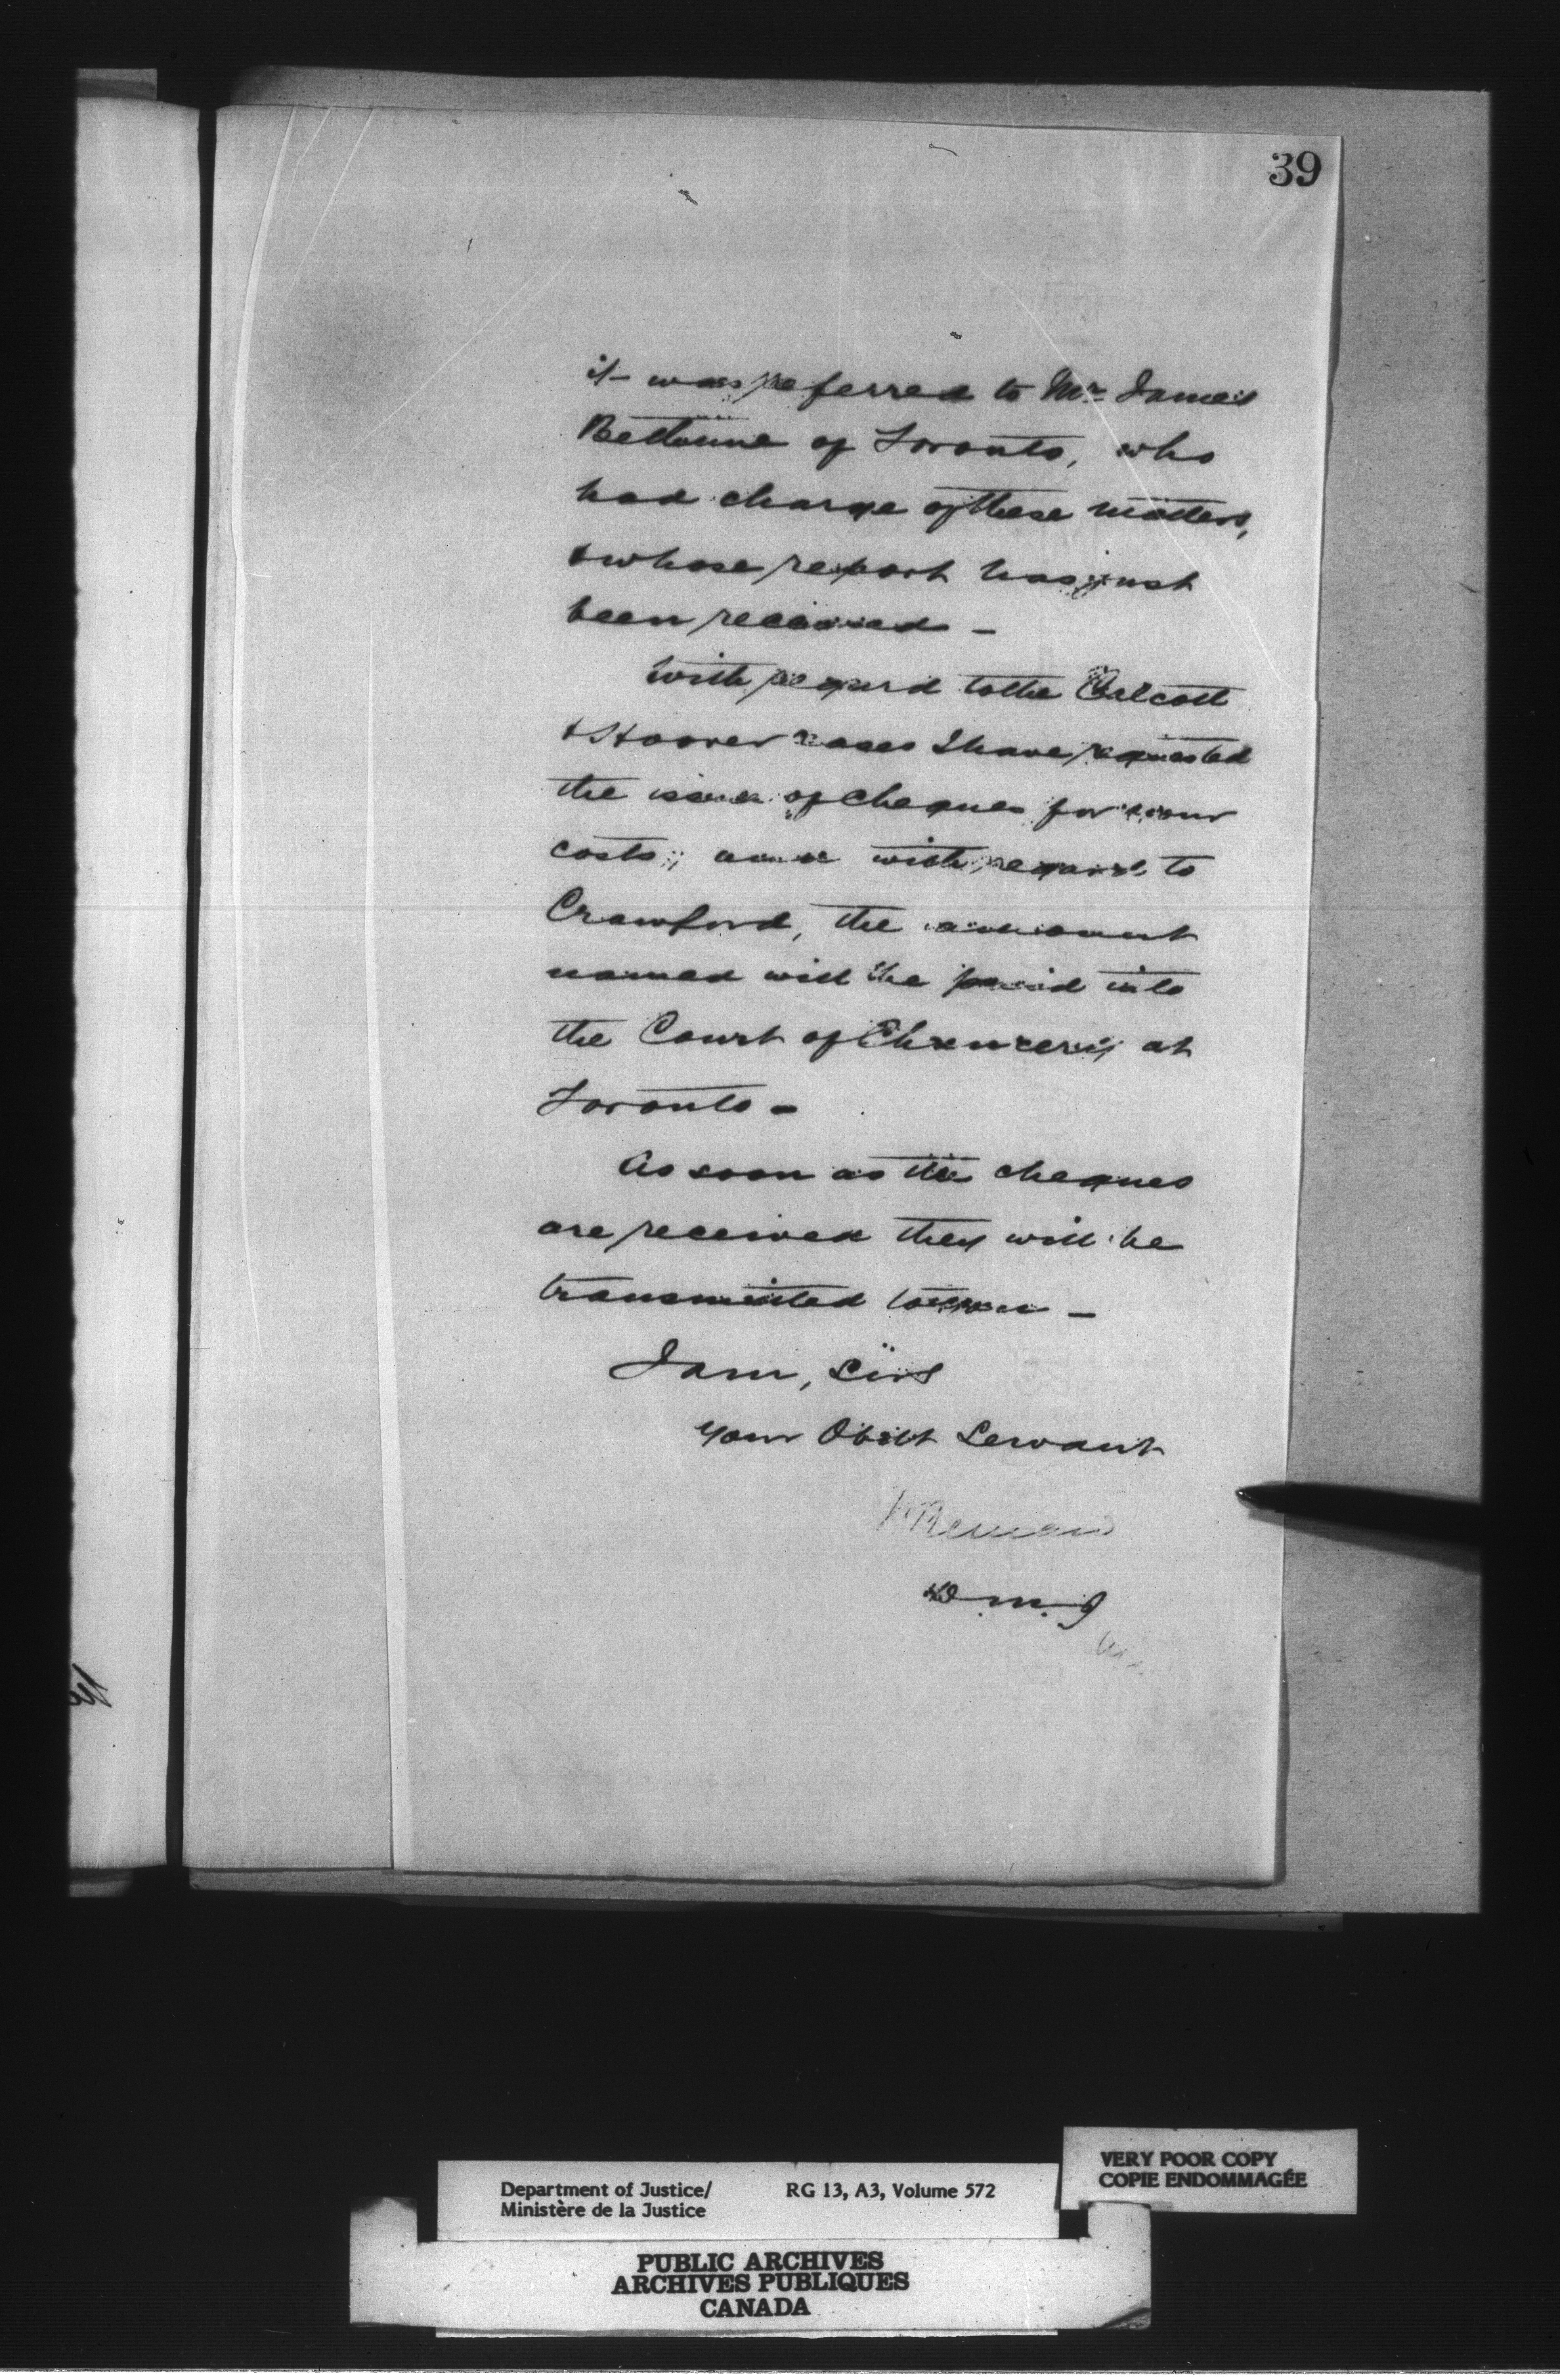 39
it was referred to Mr James
Bethune of Toronto, who
had charge of these matters,
& whose report has just
been received –
With regard to the Calcott
& Hoover cases I have requested
the issue of cheques for your
costs; and with regard to
Crawford, the amount
named will be paid into
the Court of Chancery at
Toronto –
As soon as the cheques
are received they will be
transmitted to you –
I am, Sirs
Your Obedt Servant
D. M. J
Department of Justice/
Ministère de la Justice
RG 13, A3, Volume 572
VERY POOR COPY
COPIE ENDOMMAGÉE
PUBLIC ARCHIVES
ARCHIVES PUBLIQUES
CANADA